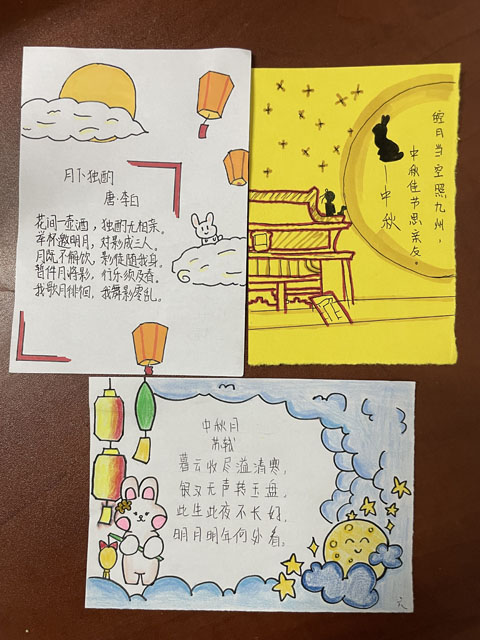 月下独酌
唐·李白
花间一壶酒，独酌无相亲。
举杯邀明月，对影成三人。
月既不解饮，影徒随我身。
暂伴月将影，行乐须及春。
我歌月徘徊，我舞影零乱。
皓月当空照九州，
中秋佳节思亲友。
——中秋
中秋月
苏轼
暮云收尽溢清寒，
银汉无声转玉盘，
此生此夜不长好，
明月明年何处看。